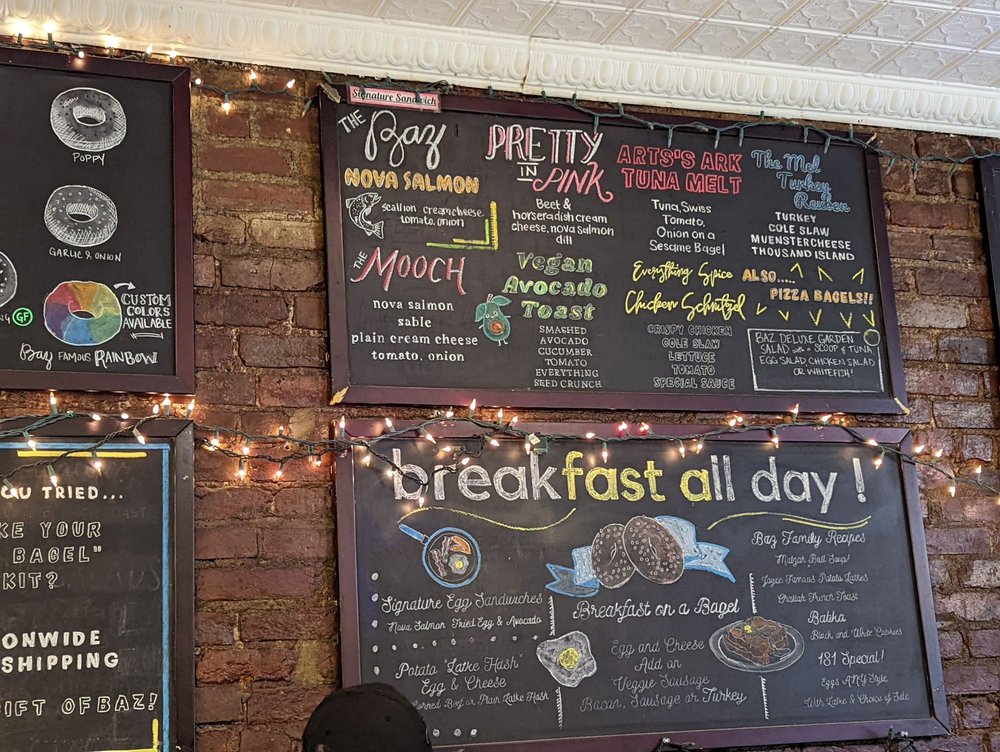 POPPY
GARLIC & ONION
NG GF
CUSTOM
COLORS
AVAILABLE
Baz FAMOUS RAINBOW
Signature Sandwich
THE Baz
NOVA SALMON
scallion cream cheese
tomato, onion
THE MOOCH
nova salmon
sable
plain cream cheese
tomato, onion
PRETTY
IN PINK
Beet &
horseradish cream
cheese, nova salmon
dill
Vegan
Avocado
Toast
SMASHED
AVOCADO
CUCUMBER
TOMATO
EVERYTHING
SEED CRUNCH
ARTS'S ARK
TUNA MELT
Tuna, Swiss
Tomato,
Onion on a
Sesame Bagel
Everything Spice
Chicken Schnitzel
CRISPY CHICKEN
COLE SLAW
LETTUCE
TOMATO
SPECIAL SAUCE
The Mel
Turkey
Reuben
TURKEY
COLE SLAW
MUENSTER CHEESE
THOUSAND ISLAND
ALSO.....
PIZZA BAGELS!!
BAZ DELUXE GARDEN
SALAD with a SCOOP of TUNA,
EGG SALAD CHICKEN SALAD
OR WHITEFISH!
OU TRIED...
KE YOUR
BAGEL"
KIT?
ONWIDE
SHIPPING
IFT OF BAZ!
breakfast all day!
Signature Egg Sandwiches
Nova Salmon Fried Egg & Avocado
Potato "Latke Hash"
Egg & Cheese
Corned Beef or Plain Latke Hash
Breakfast on a Bagel
Egg and Cheese
Add on
Veggie Sausage
Bacon, Sausage or Turkey
Baz Family Recipes
Matzah Ball Soup!
Joyce Famous Potato Latkes
Challah French Toast
Babka
Black and White Cookies
181 Special!
Eggs ANY Style
With Latke & Choice of Side